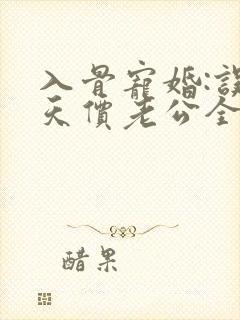 入骨寵婚:誤
天價老公全
醋果